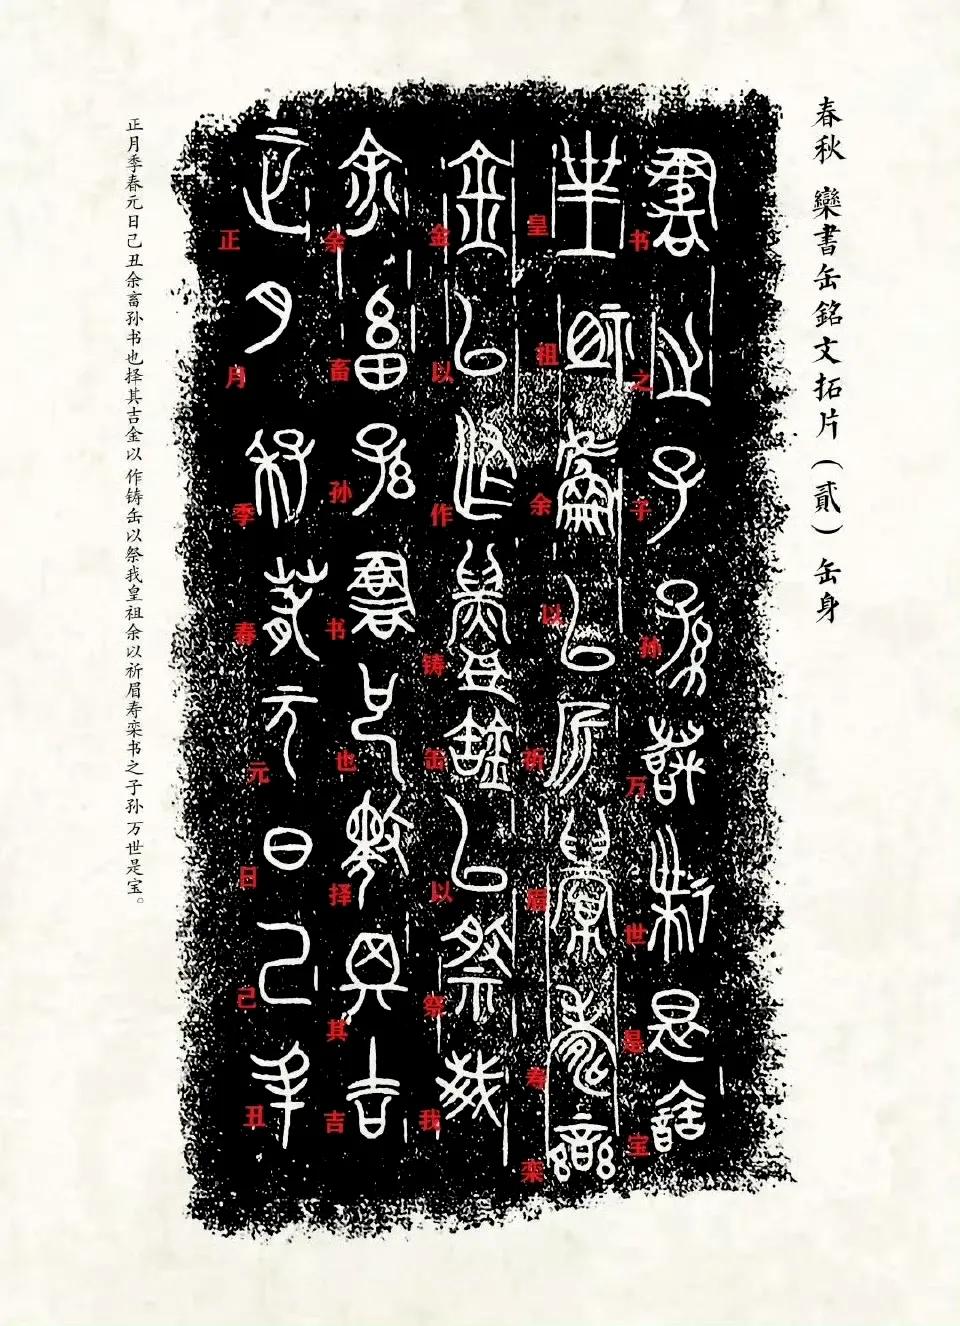 春秋 欒書缶銘文拓片（貳）缶身
正月季春元日己丑
余畜孙书也择其吉
金以作铸缶以祭我
皇祖余以祈眉寿栾
书之子孙万世是宝
正月季春元日己丑余畜孙书也择其吉金以作铸缶以祭我皇祖余以祈眉寿栾书之子孙万世是宝。